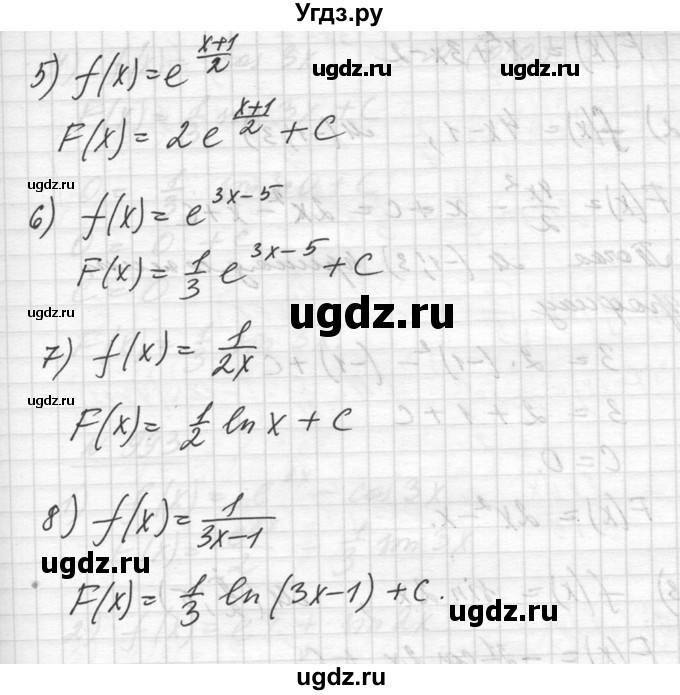 Угдз.ру
5) f(x) = e^{\frac{x+1}{2}}
ugdz.ru ugdz.ru
F(x) = 2e^{\frac{x+1}{2}} + C
ugdz.ru
6) f(x) = e^{3x-5}
F(x) = \frac{1}{3} e^{3x-5} + C
ugdz.ru
ugdz.ru
7) f(x) = \frac{1}{2x}
ugdz.ru
F(x) = \frac{1}{2} ln x + C
8) f(x) = \frac{1}{3x-1}
ugdz.ru
F(x) = \frac{1}{3} ln (3x-1) + C.
ugdz.ru ugdz.ru